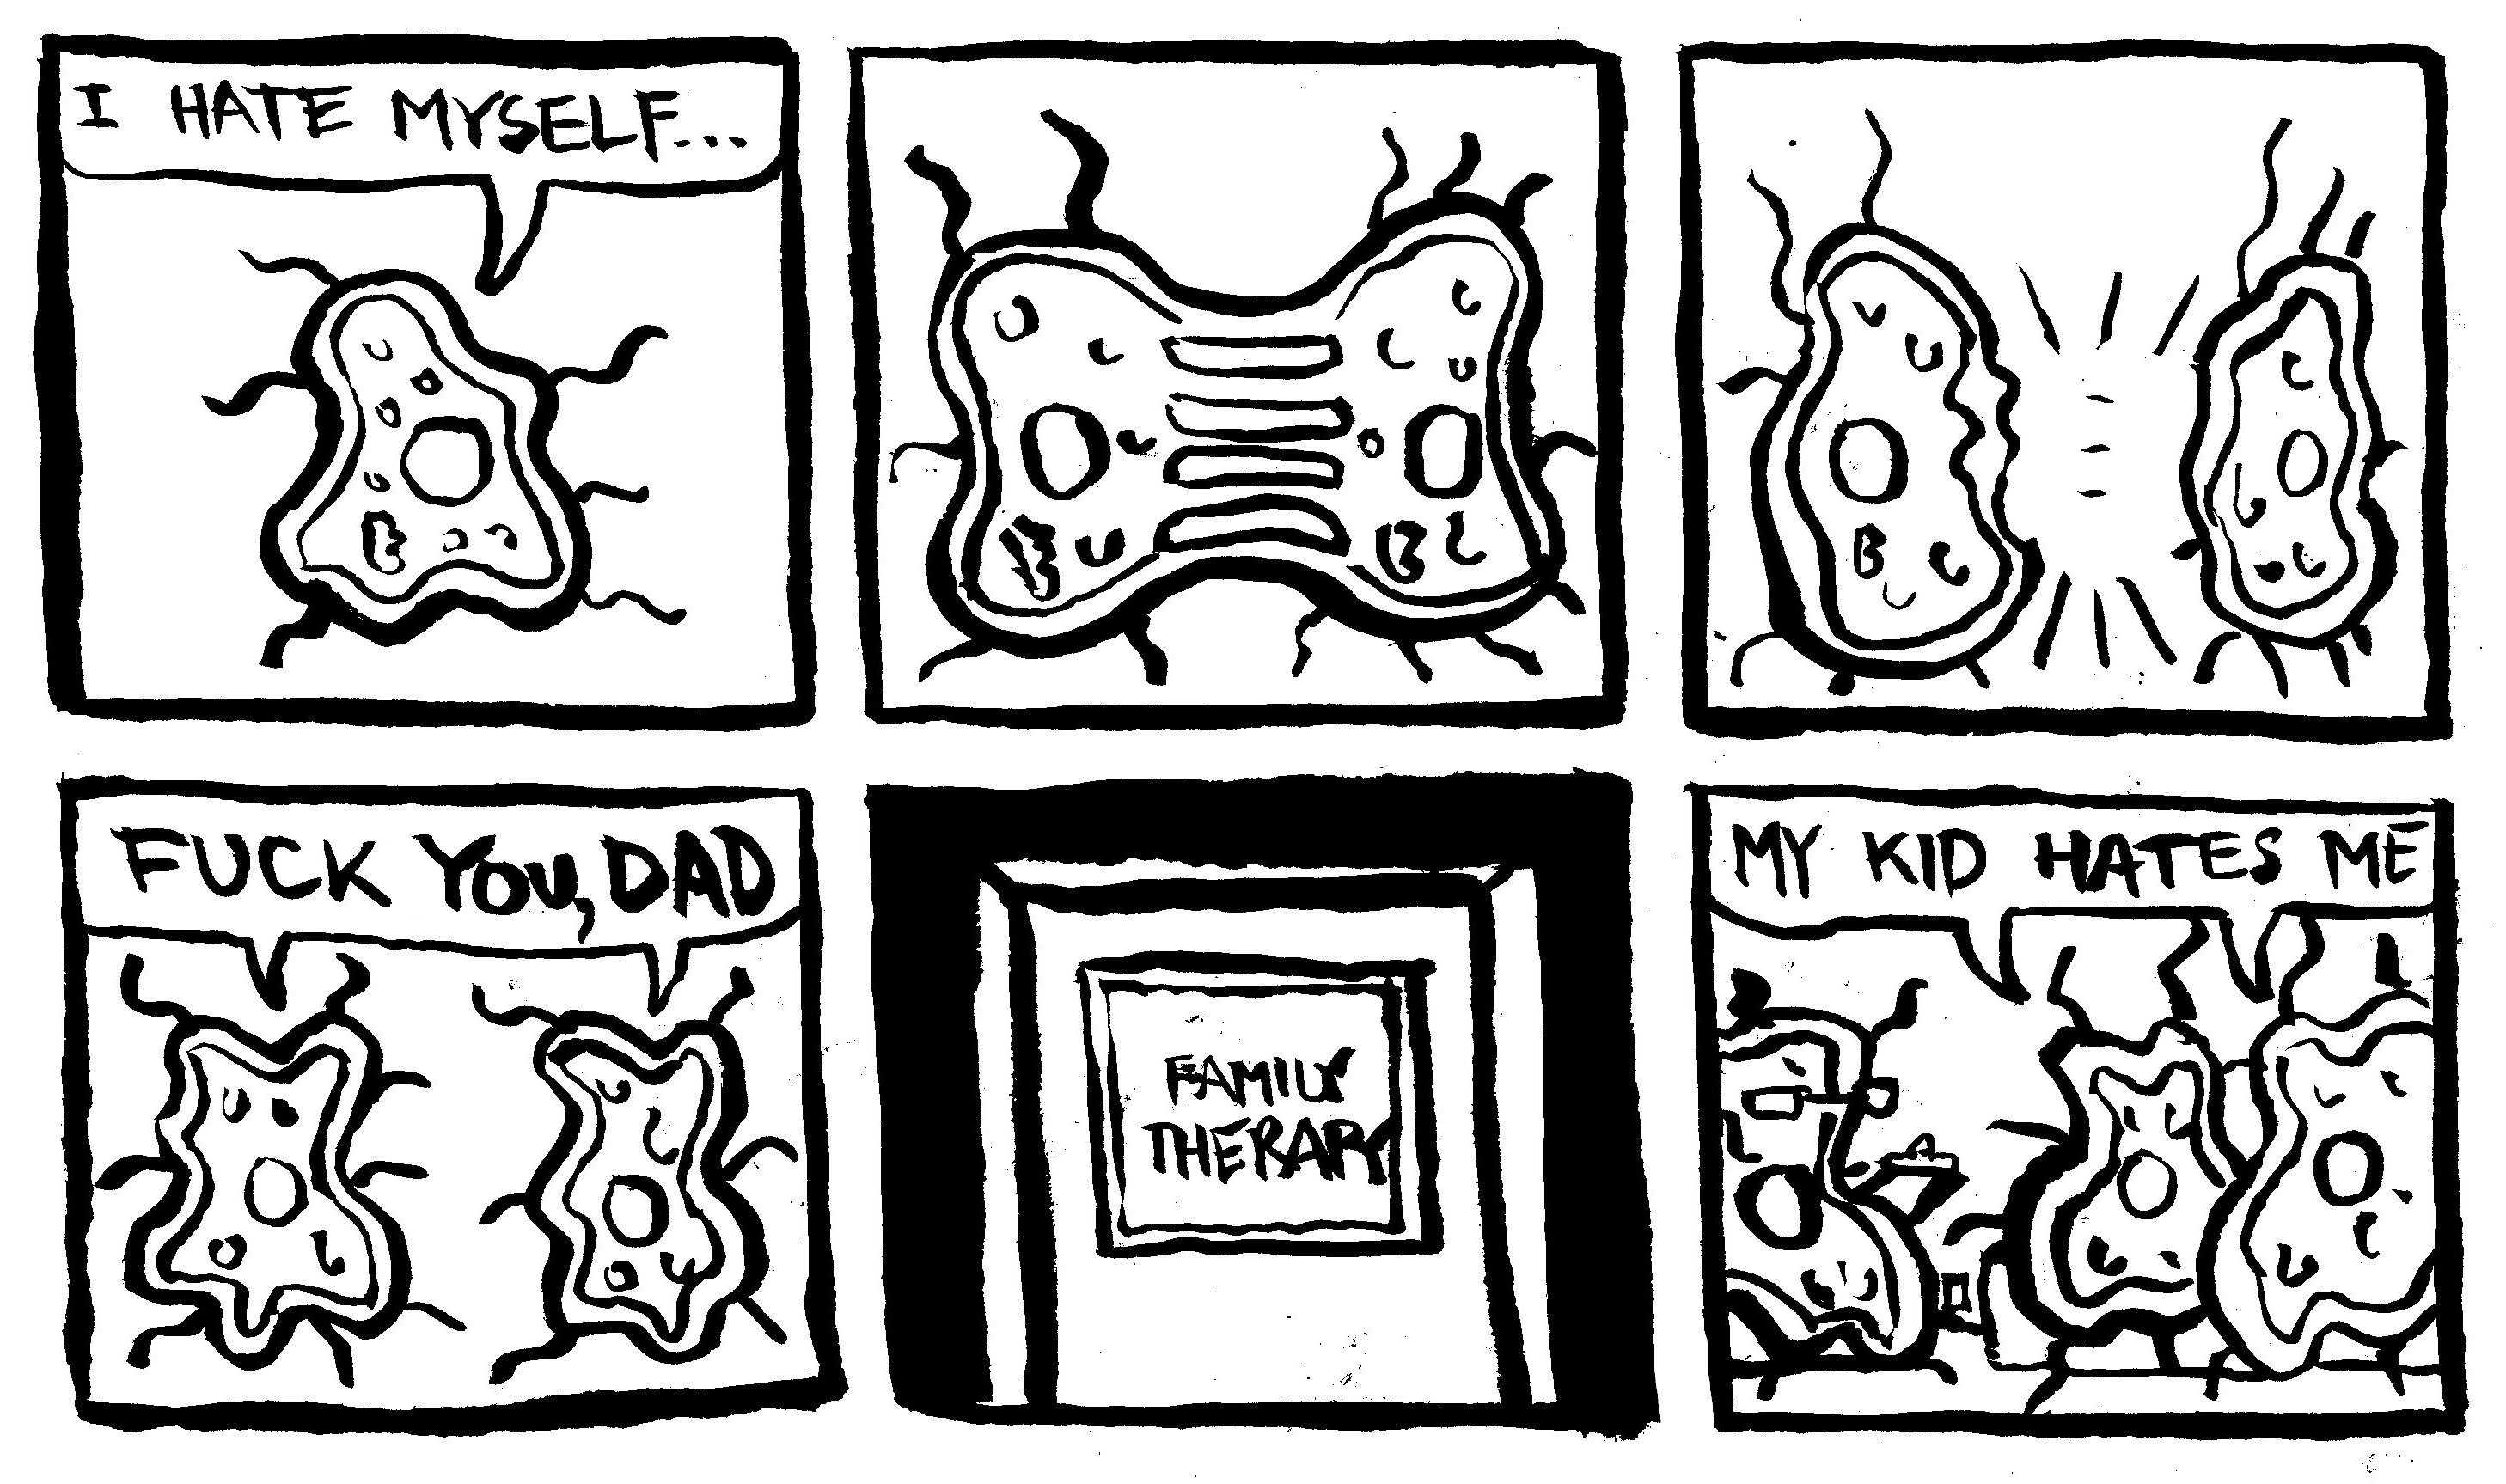 I HATE MYSELF...
FUCK YOU, DAD
FAMILY
THERAPY
MY KID HATES ME